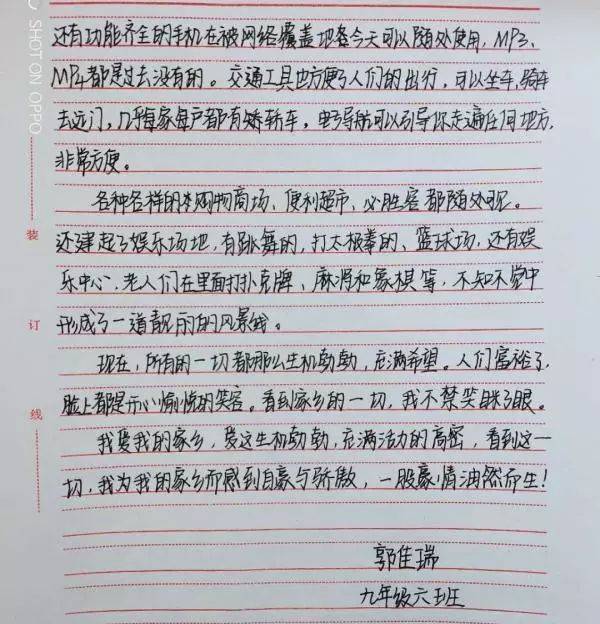 SHOT ON OPPO
还有功能齐全的手机在被网络覆盖地各今天可以随处使用，MP3、
MP4都是过去没有的。交通工具也方便了人们的出行，可以坐车，骑车
去远门，几乎每家每户都有矫轿车，电子导航可以引导你走遍任何地方，
非常方便。
各种各样的购物商场、便利超市、必胜客都随处可见。
还建起了娱乐场地，有跳舞的，打太极拳的、篮球场，还有娱
乐中心，老人们在里面打扑克牌、麻将和象棋等，不知不觉中
形成了一道靓丽的风景线。
现在，所有的一切都那么生机勃勃，充满希望。人们富裕了，
脸上都是心愉悦的笑容。看到家乡的一切，我不禁笑眯了眼。
我爱我的家乡，爱这生机勃勃，充满活力的高密，看到这一
切，我为我的家乡而感到自豪与骄傲，一股豪情油然而生！
郭佳瑞
九年级六班
装
订
线